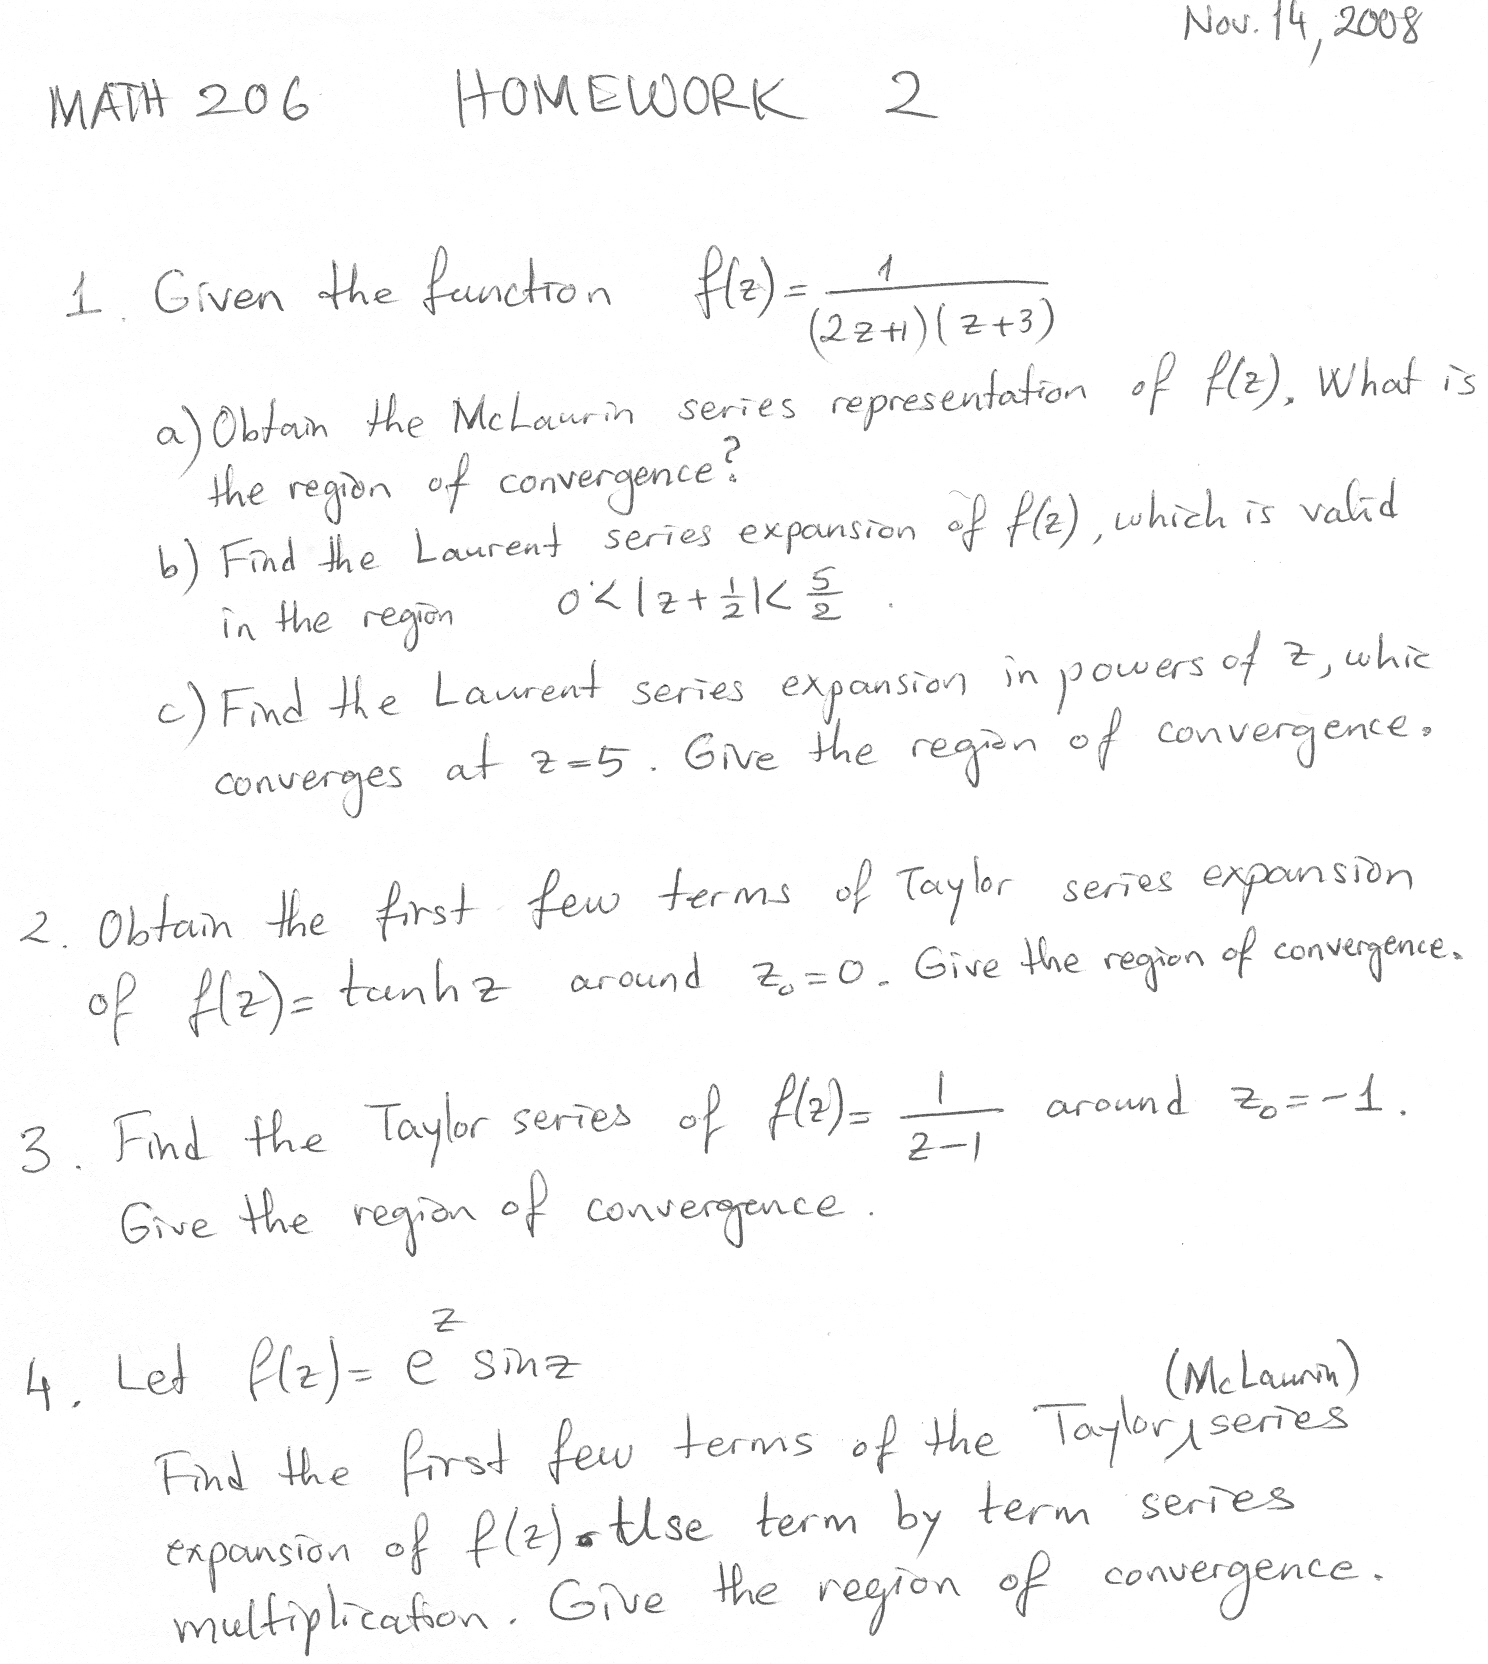 Nov. 14, 2008
MATH 206 HOMEWORK 2
1. Given the function f(z) = 1/((2z+1)(z+3))
a) Obtain the McLaurin series representation of f(z). What is
the region of convergence?
b) Find the Laurent series expansion of f(z), which is valid
in the region 0 < |z + 1/2| < 5/2 .
c) Find the Laurent series expansion in powers of z, whic
converges at z=5. Give the region of convergence.
2. Obtain the first few terms of Taylor series expansion
of f(z) = tanh z around z₀ = 0. Give the region of convergence.
3. Find the Taylor series of f(z) = 1/(z-1) around z₀ = -1.
Give the region of convergence.
4. Let f(z) = e^z sin z
(McLaurin)
Find the first few terms of the Taylor series
expansion of f(z). Use term by term series
multiplication. Give the region of convergence.